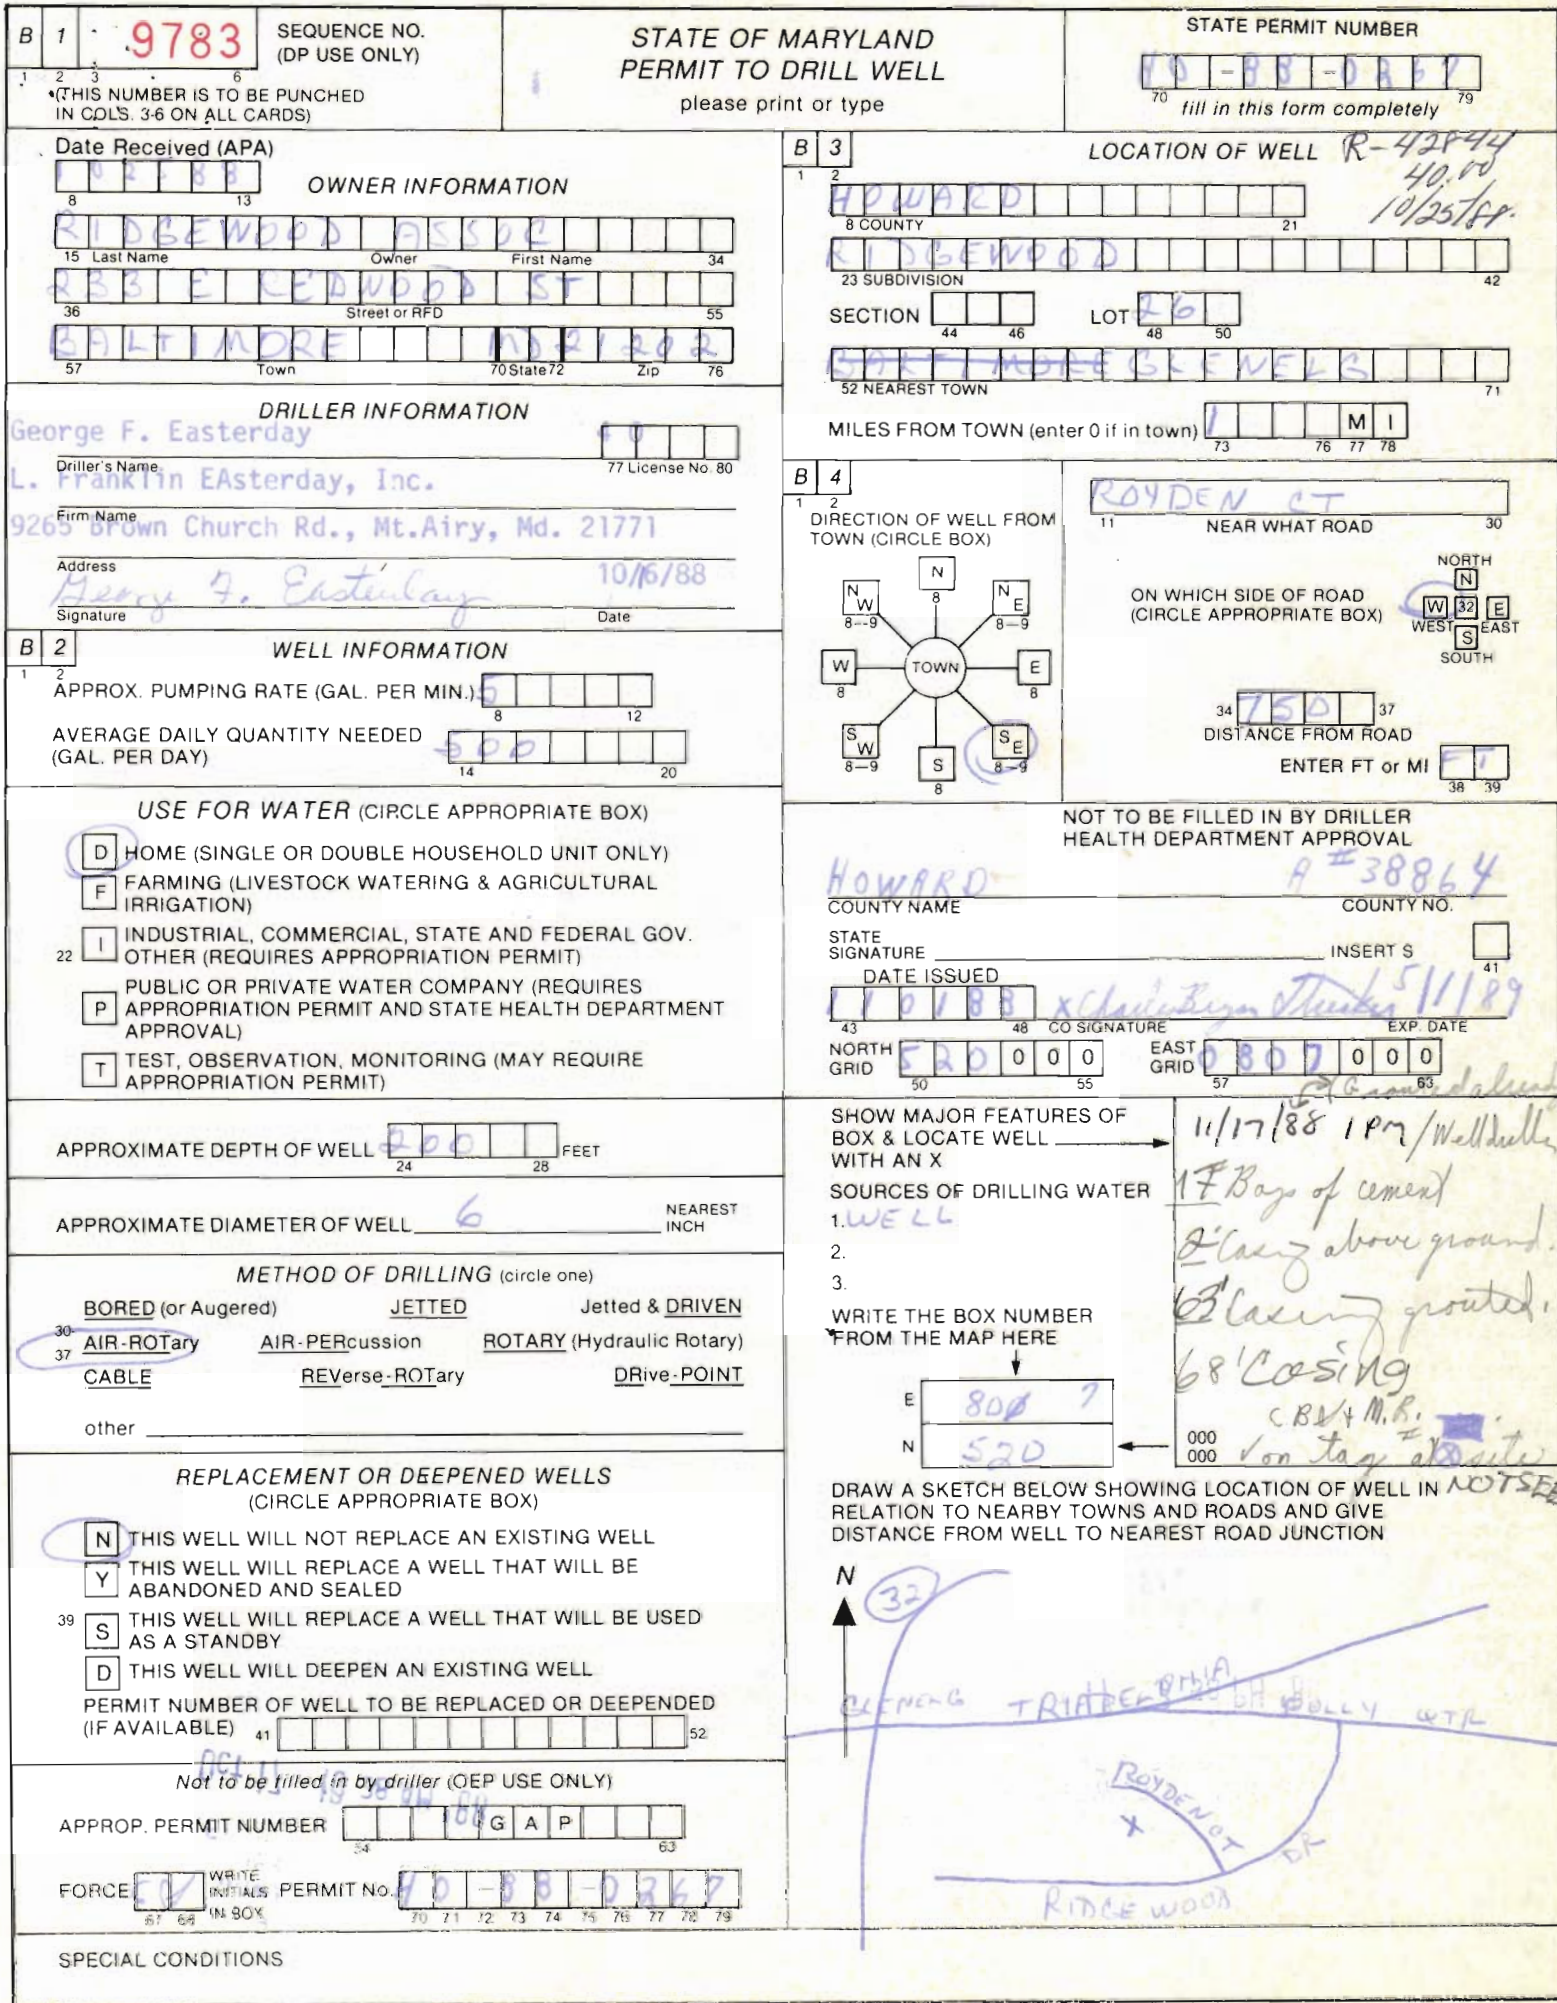 B 1 9783 SEQUENCE NO.
(DP USE ONLY)
1 2 3 6
(THIS NUMBER IS TO BE PUNCHED
IN COLS. 3-6 ON ALL CARDS)
STATE OF MARYLAND
PERMIT TO DRILL WELL
please print or type
STATE PERMIT NUMBER
HO-88-0267
70 79
fill in this form completely
Date Received (APA)
8 13
OWNER INFORMATION
RIDGEWOOD ASSOC
15 Last Name Owner First Name 34
233 E REDWOOD ST
36 Street or RFD 55
BALTIMORE MD 21202
57 Town 70 State 72 Zip 76
DRILLER INFORMATION
George F. Easterday 40
Driller's Name 77 License No. 80
L. Franklin EAsterday, Inc.
Firm Name
9265 Brown Church Rd., Mt.Airy, Md. 21771
Address
George F. Easterday 10/6/88
Signature Date
B 2 WELL INFORMATION
1 2
APPROX. PUMPING RATE (GAL. PER MIN.) 5
8 12
AVERAGE DAILY QUANTITY NEEDED
(GAL. PER DAY) 500
14 20
USE FOR WATER (CIRCLE APPROPRIATE BOX)
D HOME (SINGLE OR DOUBLE HOUSEHOLD UNIT ONLY)
F FARMING (LIVESTOCK WATERING & AGRICULTURAL
IRRIGATION)
22 I INDUSTRIAL, COMMERCIAL, STATE AND FEDERAL GOV.
OTHER (REQUIRES APPROPRIATION PERMIT)
P PUBLIC OR PRIVATE WATER COMPANY (REQUIRES
APPROPRIATION PERMIT AND STATE HEALTH DEPARTMENT
APPROVAL)
T TEST, OBSERVATION, MONITORING (MAY REQUIRE
APPROPRIATION PERMIT)
APPROXIMATE DEPTH OF WELL 200 FEET
24 28
APPROXIMATE DIAMETER OF WELL 6 NEAREST
INCH
METHOD OF DRILLING (circle one)
BORED (or Augered) JETTED Jetted & DRIVEN
30-
37 AIR-ROTary AIR-PERcussion ROTARY (Hydraulic Rotary)
CABLE REVerse-ROTary DRive-POINT
other
REPLACEMENT OR DEEPENED WELLS
(CIRCLE APPROPRIATE BOX)
N THIS WELL WILL NOT REPLACE AN EXISTING WELL
Y THIS WELL WILL REPLACE A WELL THAT WILL BE
ABANDONED AND SEALED
39 S THIS WELL WILL REPLACE A WELL THAT WILL BE USED
AS A STANDBY
D THIS WELL WILL DEEPEN AN EXISTING WELL
PERMIT NUMBER OF WELL TO BE REPLACED OR DEEPENDED
(IF AVAILABLE) 41 52
Not to be filled in by driller (OEP USE ONLY)
APPROP. PERMIT NUMBER G A P
54 63
FORCE WRITE
INITIALS
IN BOX PERMIT No. HO-88-0267
67 68 70 71 72 73 74 75 76 77 78 79
SPECIAL CONDITIONS
B 3 LOCATION OF WELL R-42844
1 2 40.00
10/25/88
HOWARD
8 COUNTY 21
RIDGEWOOD
23 SUBDIVISION 42
SECTION LOT 26
44 46 48 50
BALTIMORE GLENELG
52 NEAREST TOWN 71
MILES FROM TOWN (enter 0 if in town) 1 M I
73 76 77 78
B 4
1 2
DIRECTION OF WELL FROM
TOWN (CIRCLE BOX)
N 8
NW 8-9
NE 8-9
W 8
TOWN
E 8
SW 8-9
SE 8-9
S 8
ROYDEN CT
11 NEAR WHAT ROAD 30
ON WHICH SIDE OF ROAD
(CIRCLE APPROPRIATE BOX)
NORTH
N
W 32 E
WEST EAST
S
SOUTH
34 750 37
DISTANCE FROM ROAD
ENTER FT or MI FT
38 39
NOT TO BE FILLED IN BY DRILLER
HEALTH DEPARTMENT APPROVAL
HOWARD A #38864
COUNTY NAME COUNTY NO.
STATE
SIGNATURE INSERT S
41
DATE ISSUED
110188 5/1/89
43 48 CO SIGNATURE EXP. DATE
NORTH
GRID 520 000
50 55
EAST
GRID 0807 000
57 63
SHOW MAJOR FEATURES OF
BOX & LOCATE WELL
WITH AN X
SOURCES OF DRILLING WATER
1. WELL
2.
3.
WRITE THE BOX NUMBER
FROM THE MAP HERE
E 800 7
N 520
000
000
11/17/88 1 PM /Welldriller
17 Bags of cement
2' Casing above ground.
63' Casing grouted.
68' Casing
on tag
NOT SEE
DRAW A SKETCH BELOW SHOWING LOCATION OF WELL IN
RELATION TO NEARBY TOWNS AND ROADS AND GIVE
DISTANCE FROM WELL TO NEAREST ROAD JUNCTION
N
32
GLENELG TRIADELPHIA
DOLLY QTR
ROYDEN CT
X
DR
RIDGEWOOD